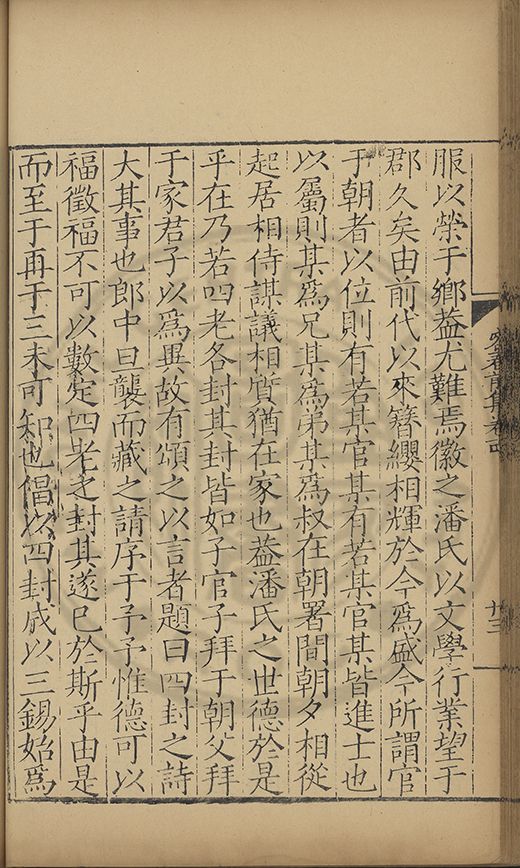 服以榮于鄉葢尤難焉徽之潘氏以文學行業望于
郡久矣由前代以來簪纓相輝於今爲盛今所謂官
于朝者以位則有若某官某有若某官某皆進士也
以屬則某爲兄某爲弟某爲叔在朝署間朝夕相從
起居相侍謀議相質猶在家也葢潘氏之世德於是
乎在乃若四老各封其封皆如子官子拜于朝父拜
于家君子以爲異故有頌之以言者題曰四封之詩
大其事也郎中旦襲而藏之請序于予予惟德可以
福徵福不可以數定四老之封其遂已於斯乎由是
而至于再于三未可知也倡以四封成以三錫始爲
卷四
廿三